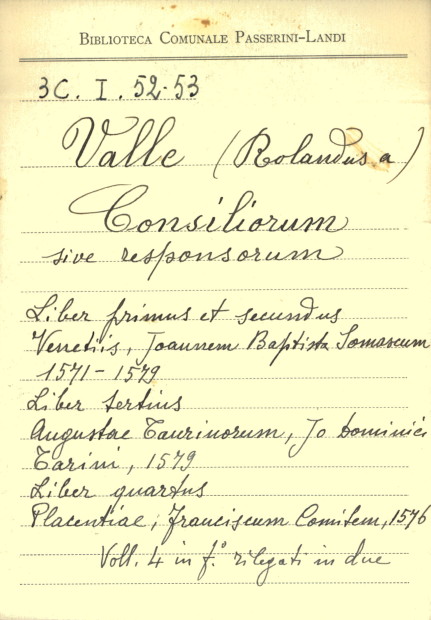 BIBLIOTECA COMUNALE PASSERINI-LANDI
3C. I. 52-53
Valle (Rolandus a)
Consiliorum
sive responsorum
Liber primus et secundus
Venetiis, Joannem Baptista Somascum
1571-1579
Liber tertius
Augustae Taurinorum, Jo Dominici
Tarini, 1579
Liber quartus
Placentiae, Franciscum Comitem, 1576
Voll. 4 in f.° rilegati in due